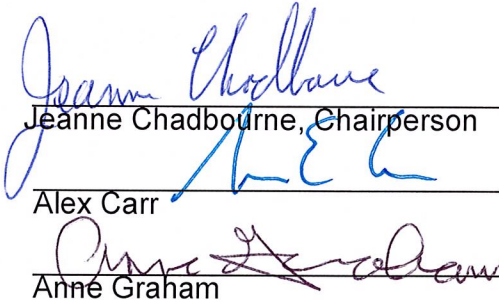 Jeanne Chadbourne
Jeanne Chadbourne, Chairperson
Alex Carr
Anne Graham
Anne Graham